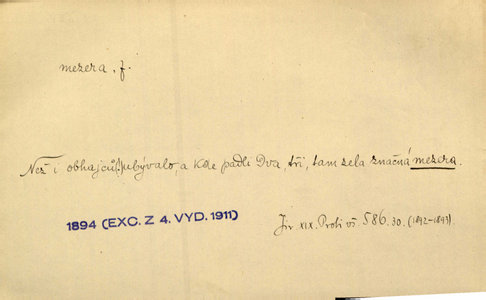 mezera, f.
Než i obhajců(!) ubývalo, a kde padli dva, tři, tam zela značná mezera.
1894 (EXC. Z 4. VYD. 1911)
Jir XIX. Proti vš 586. 30. (1892–1893).